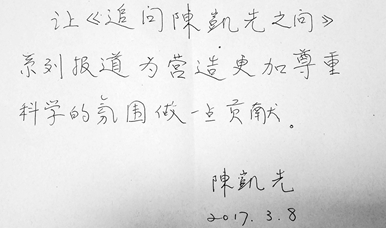 让《追问陳凱先之问》
系列报道为营造更加尊重
科学的氛围做一点贡献。
陳凱先
2017.3.8